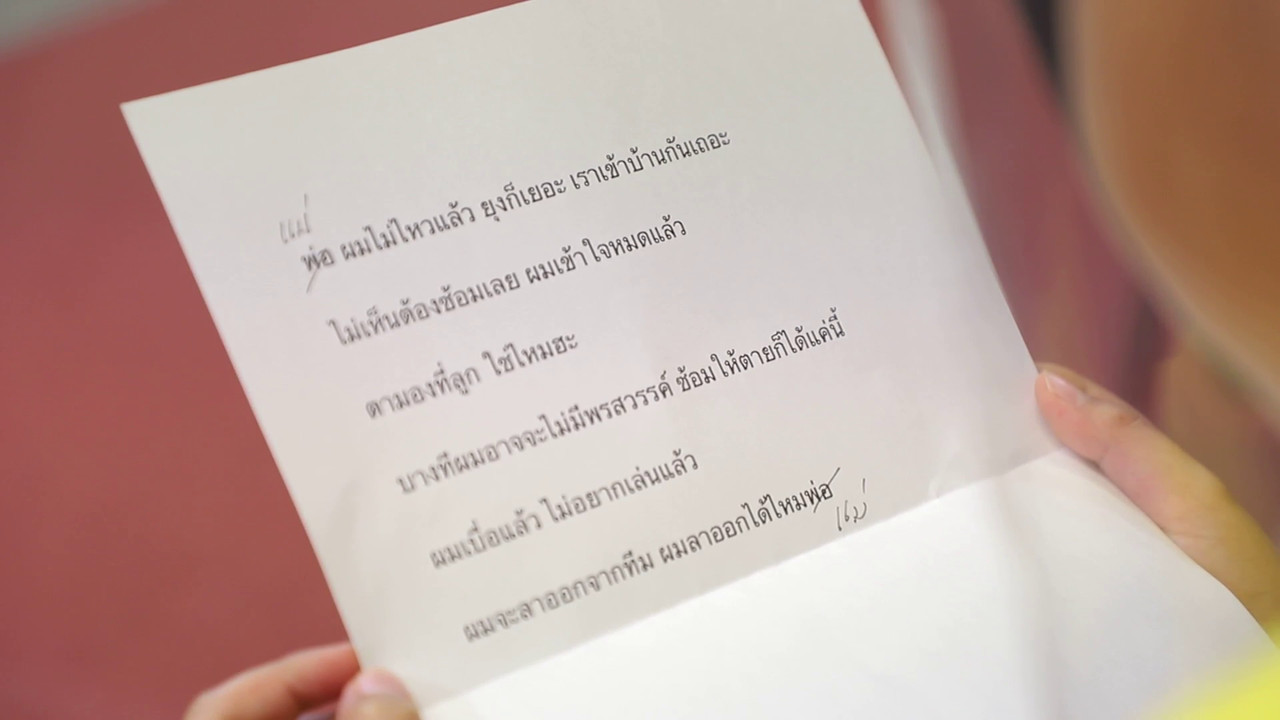 แม่
พ่อ ผมไม่ไหวแล้ว ยุงก็เยอะ เราเข้าบ้านกันเถอะ
ไม่เห็นต้องซ้อมเลย ผมเข้าใจหมดแล้ว
ตามองที่ลูก ใช่ไหมฮะ
บางทีผมอาจจะไม่มีพรสวรรค์ ซ้อมให้ตายก็ได้แค่นี้
ผมเบื่อแล้ว ไม่อยากเล่นแล้ว
ผมจะลาออกจากทีม ผมลาออกได้ไหมพ่อ
แม่